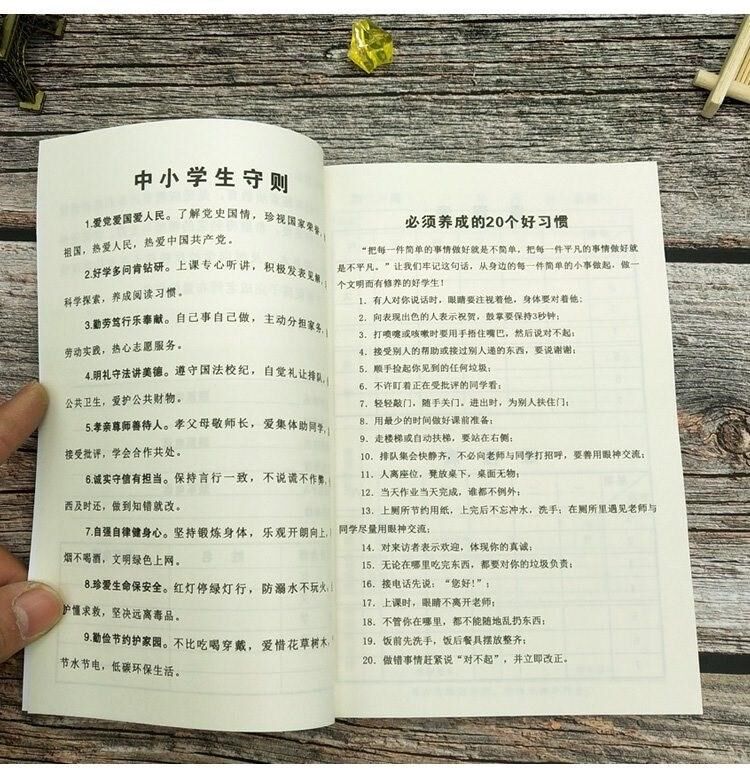 中小学生守则
1.爱党爱国爱人民。了解党史国情，珍视国家荣誉，
祖国，热爱人民，热爱中国共产党。
2.好学多问肯钻研。上课专心听讲，积极发表见解，
科学探索，养成阅读习惯。
3.勤劳笃行乐奉献。自己事自己做，主动分担家务，
劳动实践，热心志愿服务。
4.明礼守法讲美德。遵守国法校纪，自觉礼让排队，
公共卫生，爱护公共财物。
5.孝亲尊师善待人。孝父母敬师长，爱集体助同学，
接受批评，学会合作共处。
6.诚实守信有担当。保持言行一致，不说谎不作弊，
西及时还，做到知错就改。
7.自强自律健身心。坚持锻炼身体，乐观开朗向上，
烟不喝酒，文明绿色上网。
8.珍爱生命保安全。红灯停绿灯行，防溺水不玩火，
护懂求救，坚决远离毒品。
9.勤俭节约护家园。不比吃喝穿戴，爱惜花草树木，
节水节电，低碳环保生活。
必须养成的20个好习惯
“把每一件简单的事情做好就是不简单，把每一件平凡的事情做好就
是不平凡。”让我们牢记这句话，从身边的每一件简单的小事做起，做一
个文明而有修养的好学生！
1. 有人对你说话时，眼睛要注视着他，身体要对着他；
2. 向表现出色的人表示祝贺，鼓掌要保持3秒钟；
3. 打喷嚏或咳嗽时要用手捂住嘴巴，然后说对不起；
4. 接受别人的帮助或接过别人递的东西，要说谢谢；
5. 顺手捡起你见到的任何垃圾；
6. 不许盯着正在受批评的同学看；
7. 轻轻敲门，随手关门。进出时，为别人扶住门；
8. 用最少的时间做好课前准备；
9. 走楼梯或自动扶梯，要站在右侧；
10. 排队集会快静齐，不必向老师与同学打招呼，要善用眼神交流；
11. 人离座位，凳放桌下，桌面无物；
12. 当天作业当天完成，谁都不例外；
13. 上厕所节约用纸，上完后不忘冲水，洗手；在厕所里遇见老师与
同学尽量用眼神交流；
14. 对来访者表示欢迎，体现你的真诚；
15. 无论在哪里吃完东西，都要对你的垃圾负责；
16. 接电话先说：“您好！”；
17. 上课时，眼睛不离开老师；
18. 不管你在哪里，都不能随地乱扔东西；
19. 饭前先洗手，饭后餐具摆放整齐；
20. 做错事情赶紧说“对不起”，并立即改正。